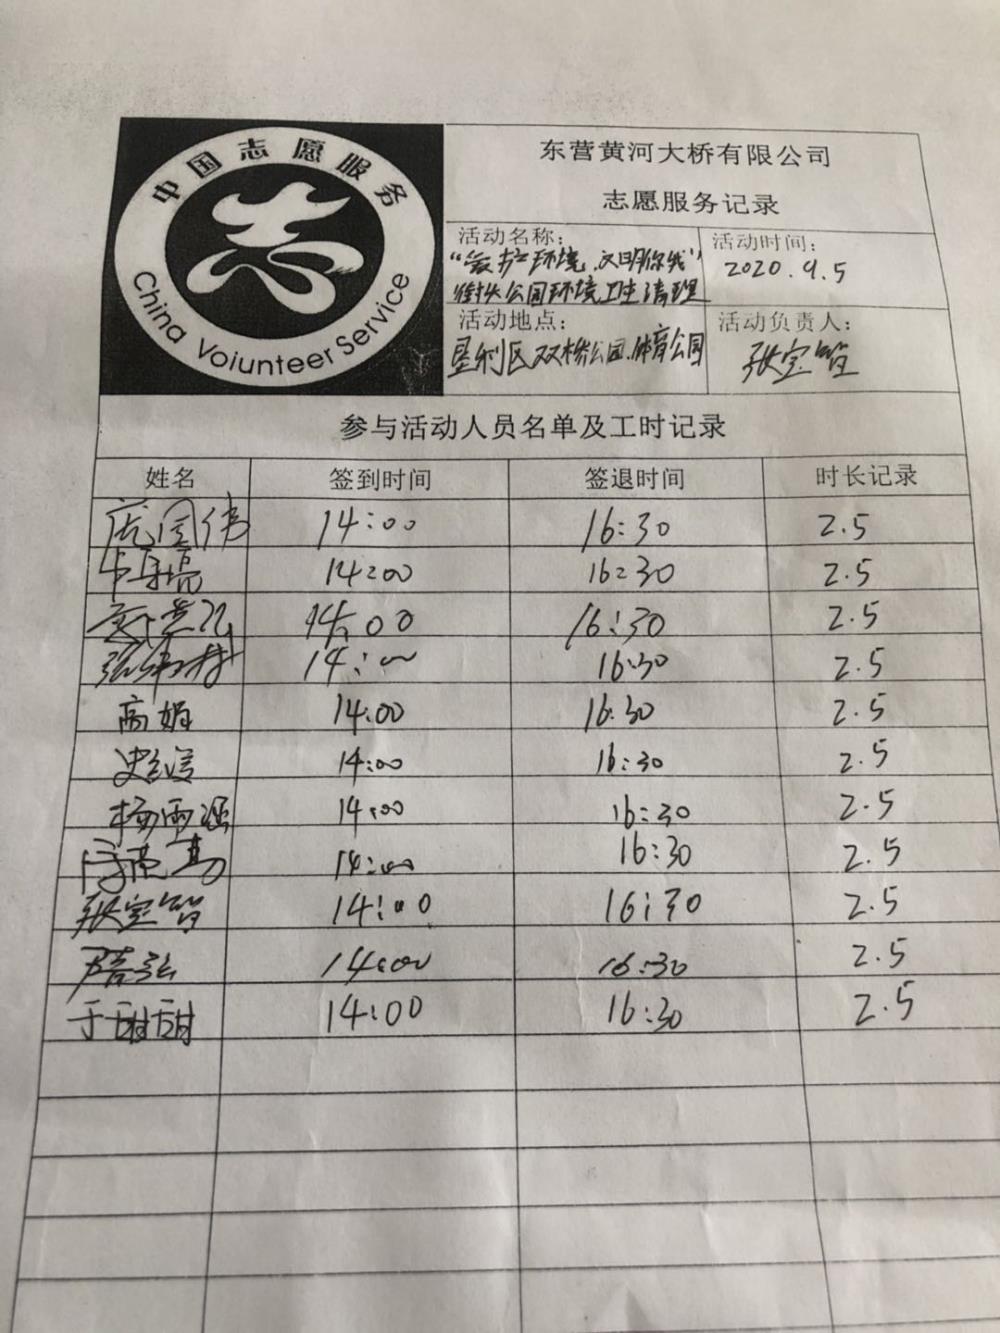 中国志愿服务
China Voiunteer Service
东营黄河大桥有限公司
志愿服务记录
活动名称：
"爱护环境，文明你我"
街头公园环境卫生清理
活动时间：
2020.9.5
活动地点：
垦利区双桥公园、体育公园
活动负责人：
张宝智
参与活动人员名单及工时记录
姓名 签到时间 签退时间 时长记录
庞国伟 14:00 16:30 2.5
14:00 16:30 2.5
14:00 16:30 2.5
14:00 16:30 2.5
高娟 14:00 16:30 2.5
14:00 16:30 2.5
杨雨涵 14:00 16:30 2.5
14:00 16:30 2.5
张宝智 14:00 16:30 2.5
14:00 16:30 2.5
于甜甜 14:00 16:30 2.5